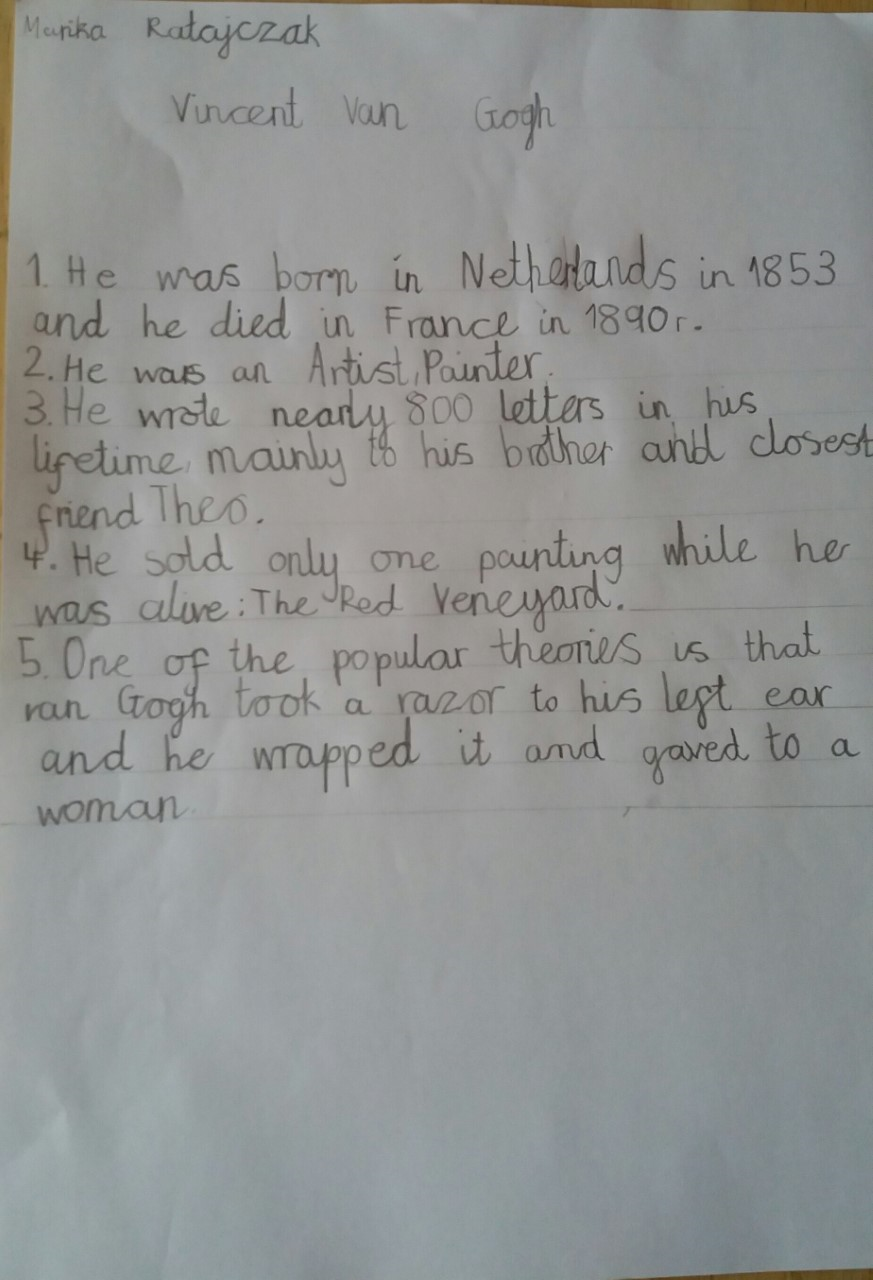 Marika Ratajczak
Vincent Van Gogh
1. He was born in Netherlands in 1853
and he died in France in 1890r.
2. He was an Artist, Painter.
3. He wrote nearly 800 letters in his
lifetime, mainly to his brother and closest
friend Theo.
4. He sold only one painting while he
was alive: The Red Veneyard.
5. One of the popular theories is that
van Gogh took a razor to his left ear
and he wrapped it and gaved to a
woman.